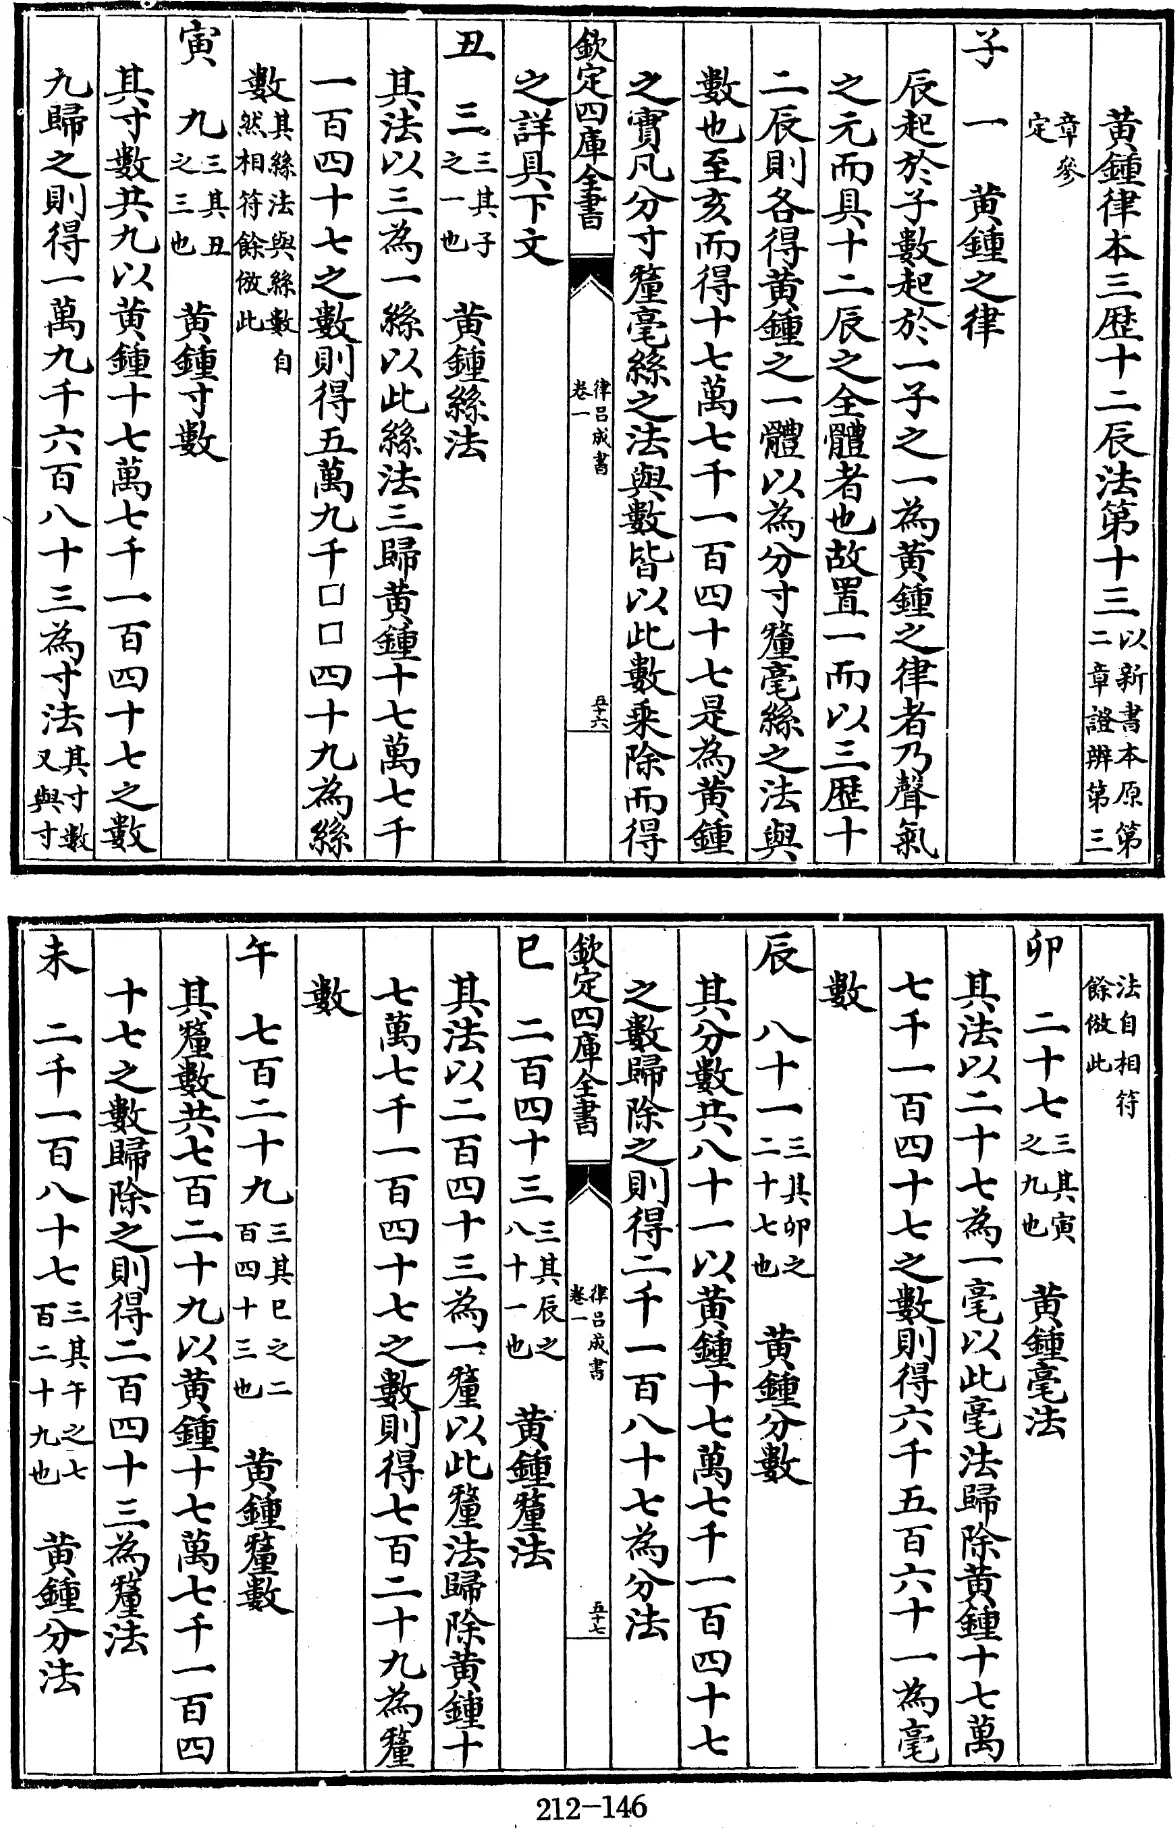 黄鍾律本三歴十二辰法第十三以新書本原第二章證辨第三
章參定
子　一　黄鍾之律
辰起於子數起於一子之一為黄鍾之律者乃聲氣
之元而具十二辰之全體者也故置一而以三歴十
二辰則各得黄鍾之一體以為分寸釐毫絲之法與
數也至亥而得十七萬七千一百四十七是為黄鍾
之實凡分寸釐毫絲之法與數皆以此數乘除而得
欽定四庫全書　律吕成書卷一　五十六
之詳具下文
丑　三三其子之一也　黄鍾絲法
其法以三為一絲以此絲法三歸黄鍾十七萬七千
一百四十七之數則得五萬九千□□四十九為絲
數其絲法與絲數自然相符餘倣此
寅　九三其丑之三也　黄鍾寸數
其寸數共九以黄鍾十七萬七千一百四十七之數
九歸之則得一萬九千六百八十三為寸法其寸數又與寸
法自相符餘倣此
卯　二十七三其寅之九也　黄鍾毫法
其法以二十七為一毫以此毫法歸除黄鍾十七萬
七千一百四十七之數則得六千五百六十一為毫
數
辰　八十一三其卯之二十七也　黄鍾分數
其分數共八十一以黄鍾十七萬七千一百四十七
之數歸除之則得二千一百八十七為分法
欽定四庫全書　律吕成書卷一　五十七
巳　二百四十三三其辰之八十一也　黄鍾釐法
其法以二百四十三為一釐以此釐法歸除黄鍾十
七萬七千一百四十七之數則得七百二十九為釐
數
午　七百二十九三其巳之二百四十三也　黄鍾釐數
其釐數共七百二十九以黄鍾十七萬七千一百四
十七之數歸除之則得二百四十三為釐法
未　二千一百八十七三其午之七百二十九也　黄鍾分法
212-146